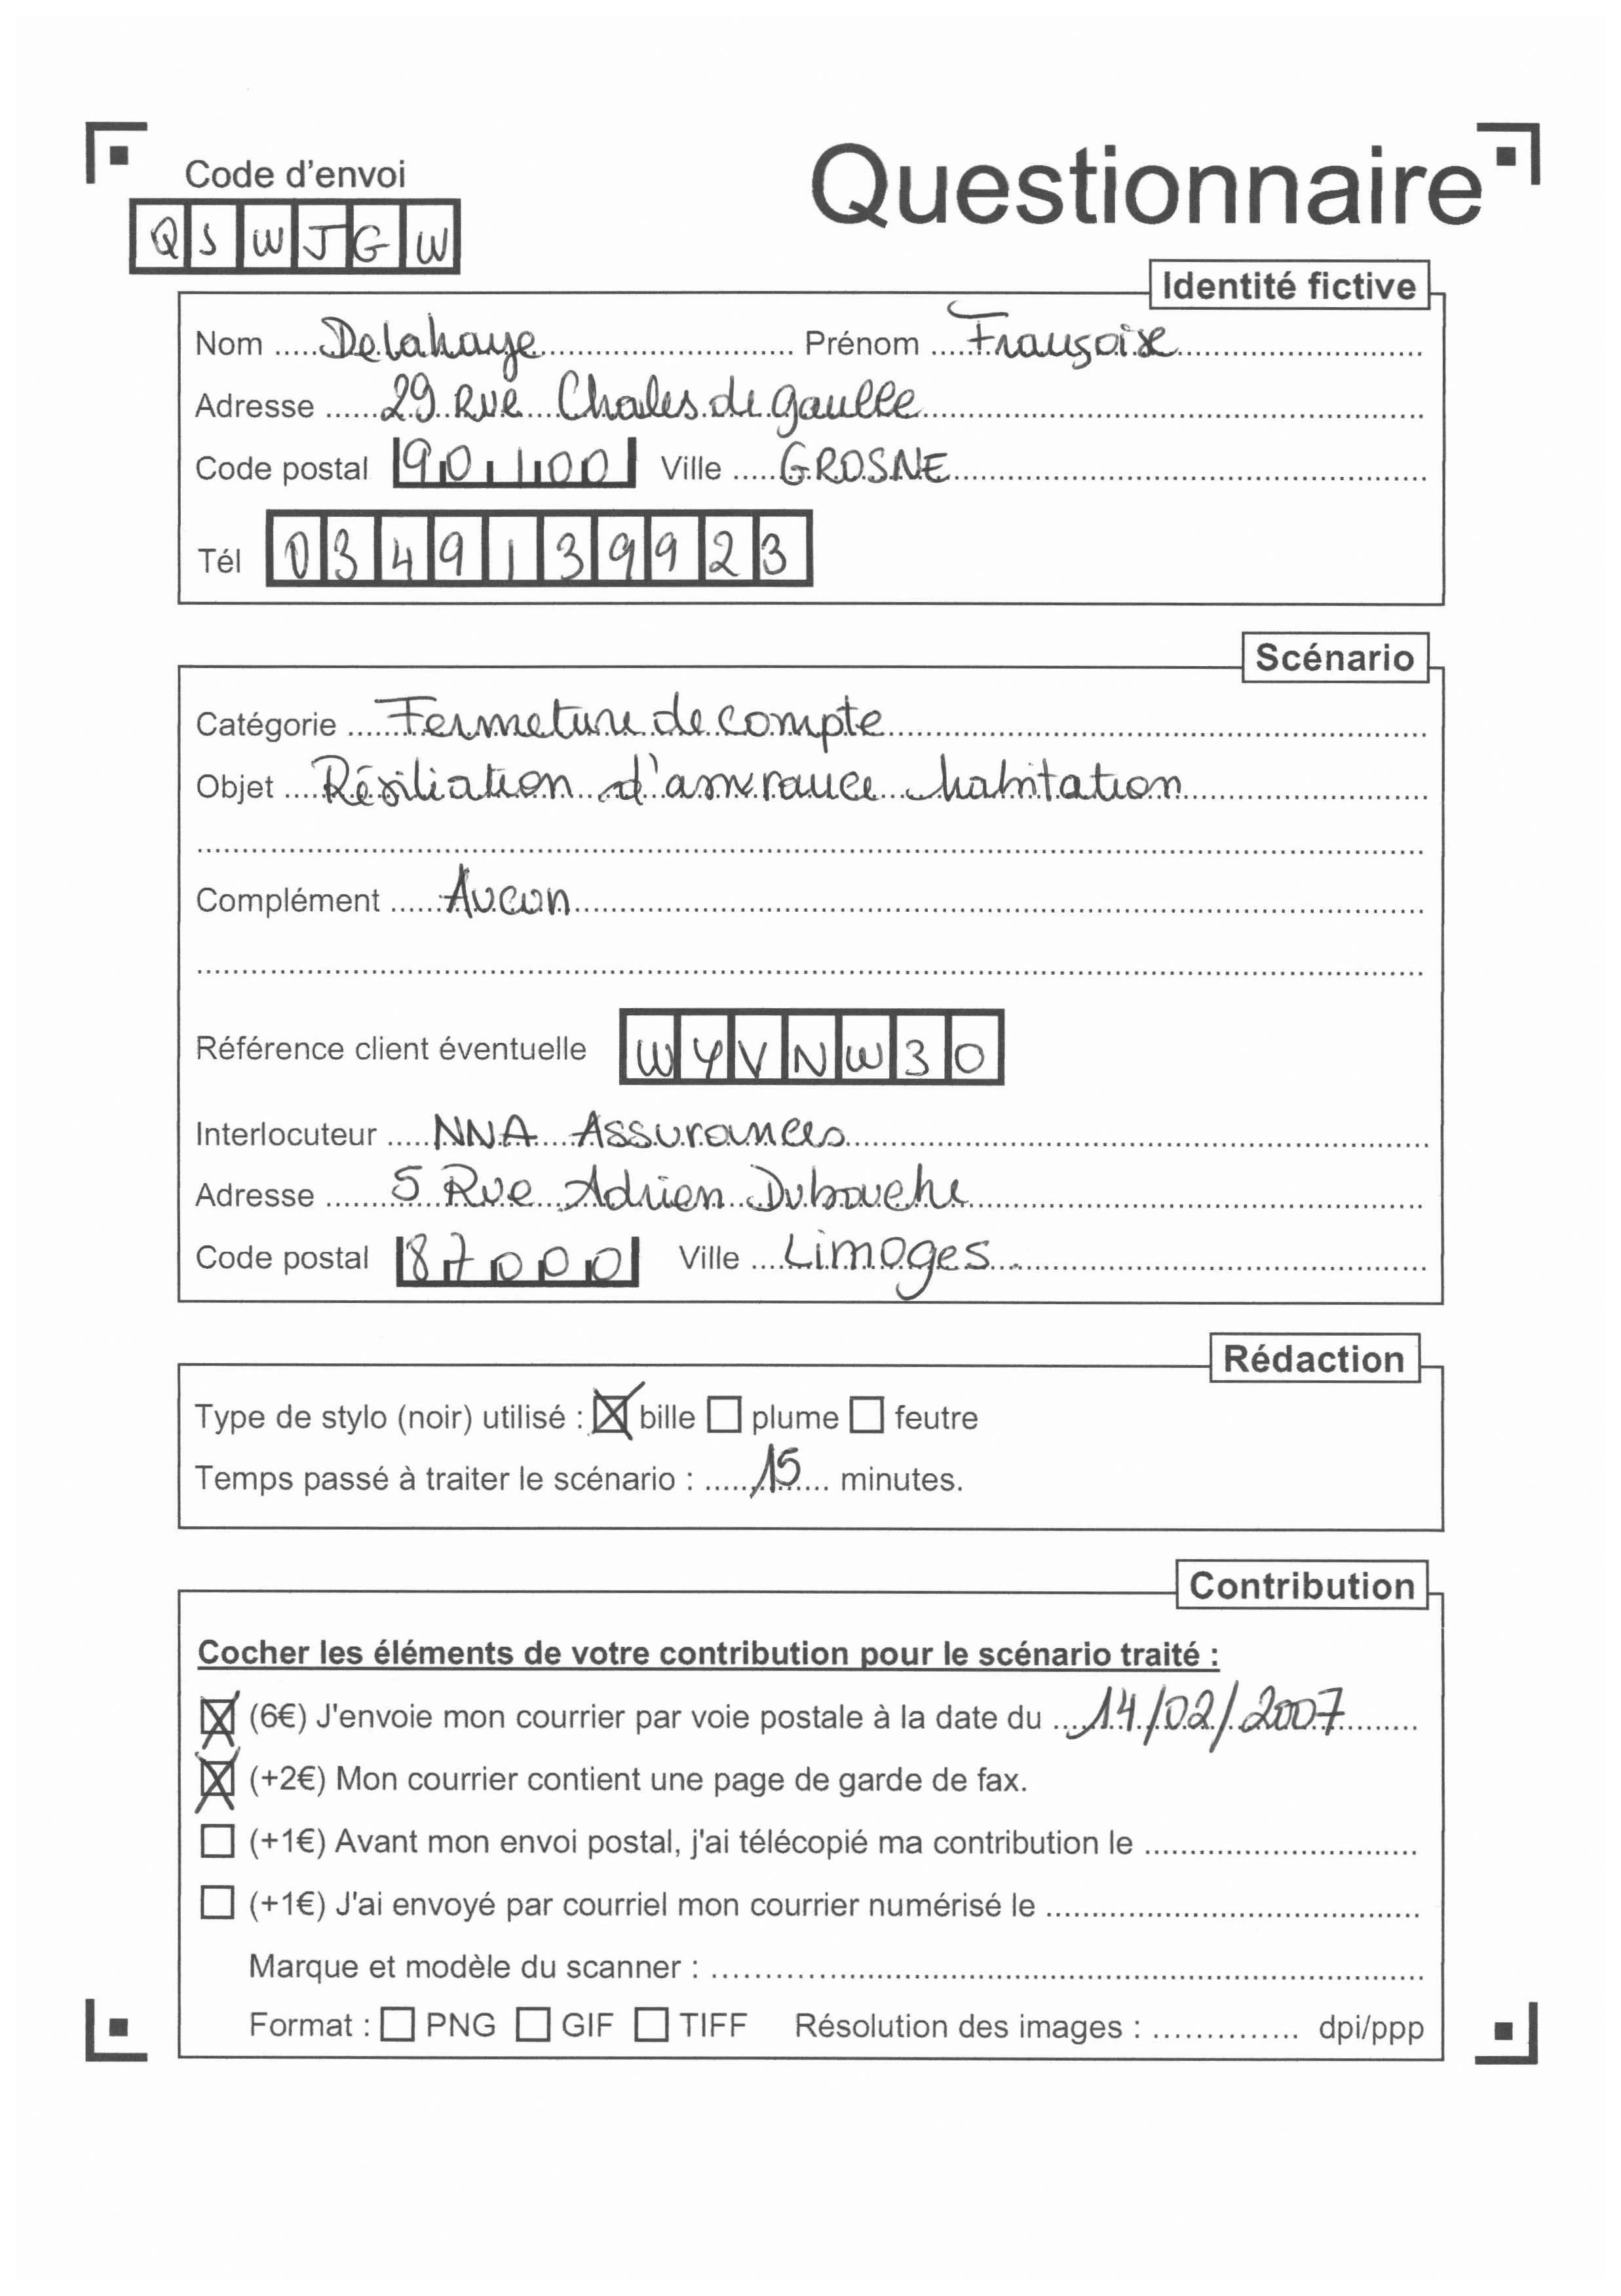 Code d'envoi
QSWJGW
Questionnaire
Identité fictive
Nom Delahaye Prénom Françoise
Adresse 29 Rue Chales de gaulle
Code postal 90100 Ville GROSNE
Tél 0349139923
Scénario
Catégorie Fermeture de compte
Objet Résiliation d'assurance habitation
Complément Aucun
Référence client éventuelle WYVNW30
Interlocuteur NNA Assurances
Adresse 5 Rue Adrien Dubouche
Code postal 87000 Ville Limoges
Rédaction
Type de stylo (noir) utilisé : ☒ bille ☐ plume ☐ feutre
Temps passé à traiter le scénario : 15 minutes.
Contribution
Cocher les éléments de votre contribution pour le scénario traité :
☒ (6€) J'envoie mon courrier par voie postale à la date du 14/02/2007
☒ (+2€) Mon courrier contient une page de garde de fax.
☐ (+1€) Avant mon envoi postal, j'ai télécopié ma contribution le
☐ (+1€) J'ai envoyé par courriel mon courrier numérisé le
Marque et modèle du scanner :
Format : ☐ PNG ☐ GIF ☐ TIFF Résolution des images : dpi/ppp